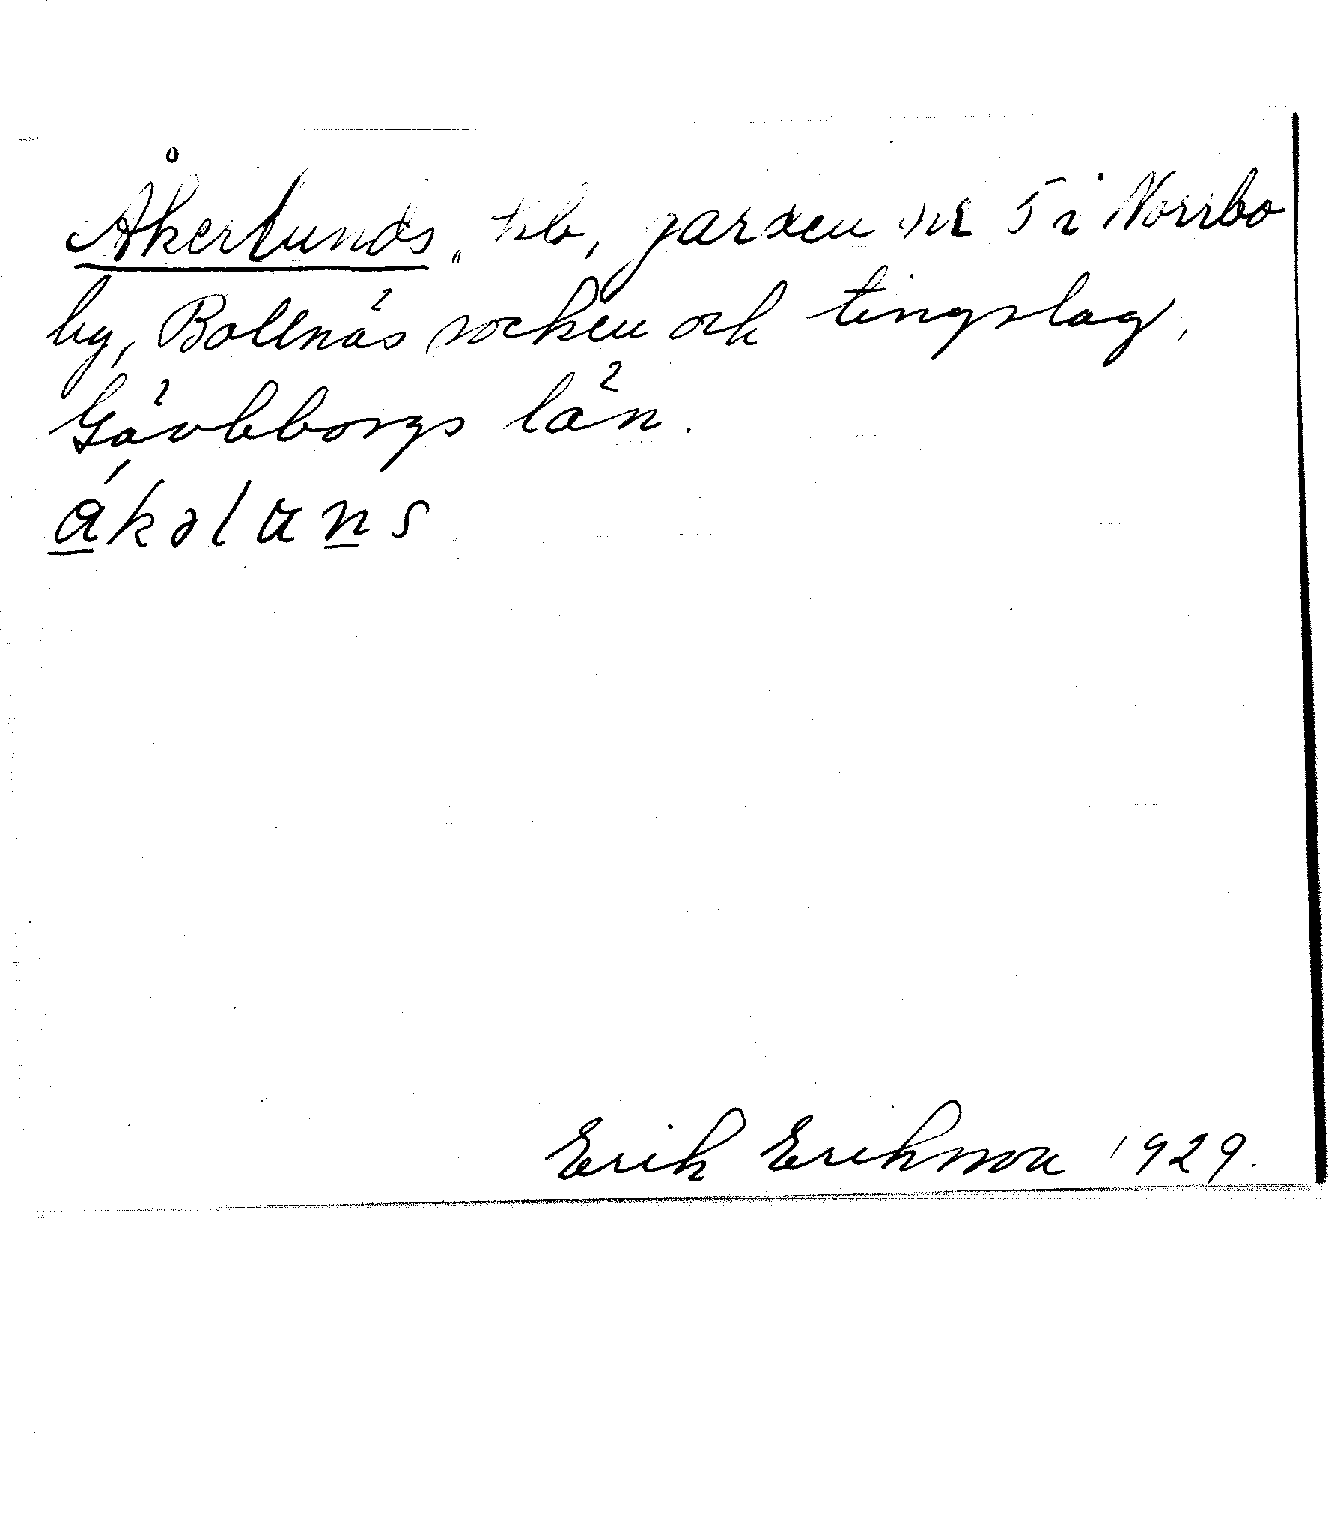 Åkerlunds, tlb, garden nr 5 i Norrbo
by, Bollnäs socken och tingslag,
Gävleborgs län.
åkəlans
Erik Eriksson 1929.